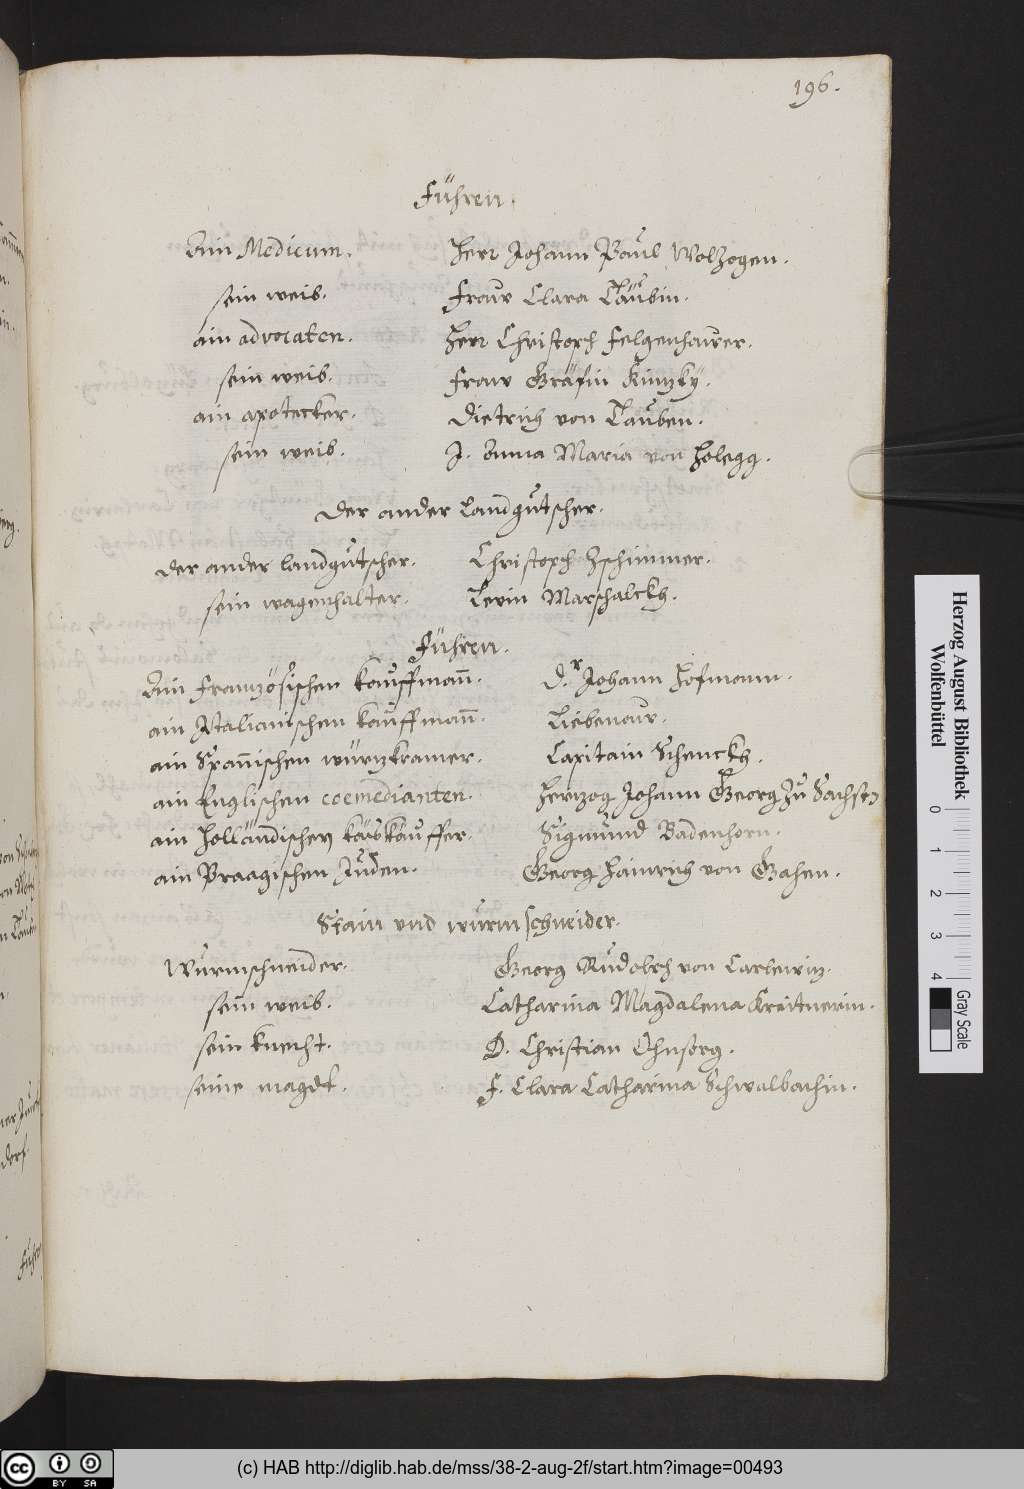 196.
Führen.
Ain Medicum. Herr Johann Paul Wolzogen.
sein weib. Fraw Clara Täubin.
ain advocaten. Herr Christoph Felgenhaurer.
sein weib. Fraw Gräfin Kintzky.
ain apotecker. Dietrich von Tauben.
sein weib. J. Anna Maria von Holegg.
Der ander Landgutscher.
der ander landgutscher. Christoph Zschimmer.
sein wagenhalter. Levin Marschalckh.
Führen.
Ain Französischen kauffmañ. D.r Johann Hofmann.
ain Italianischen kauffmañ. Liebenaur.
ain Spañischen würtzkramer. Capitain Schenckh.
ain Englischen coemedianten. Hertzog Johann Georg Zu Sachsen
ain Holländischen käskäuffer. Sigmund Badenhorn.
ain Praagischen Juden. Georg Hainrich von
Stain und wurmschneider.
Wurmschneider. Georg Rudolph von Carlewitz.
sein weib. Catharina Magdalena Kreitnerin.
sein knecht. D. Christian Ohnsorg.
seine magdt. F. Clara Catharina Schwalbachin.
Herzog August Bibliothek
Wolfenbüttel
0 1 2 3 4
Gray Scale
cc BY SA
(c) HAB http://diglib.hab.de/mss/38-2-aug-2f/start.htm?image=00493